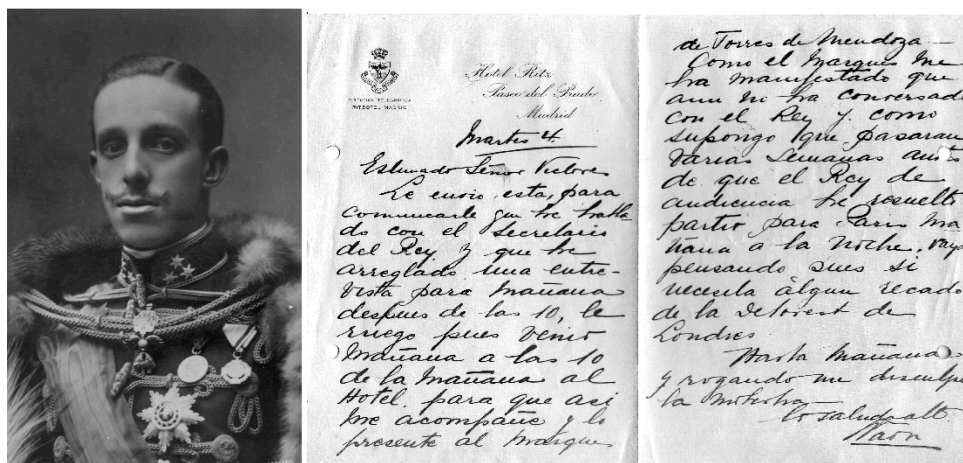 Hotel Ritz
Paseo del Prado
Madrid
Martes 4.
Estimado Señor Victores
Le envio esta, para
comunicarle que he habla
do con el Secretario
del Rey y que he
arreglado una entre-
vista para Mañana
despues de las 10, le
ruego pues venir
Mañana a las 10
de la Mañana al
Hotel, para que asi
me acompañe y lo
presente al Marques
de Torres de Mendoza—
Como el Marques me
ha manifestado que
aun no ha conversado
con el Rey y como
supongo que pasaran
varias Semanas antes
de que el Rey de
audiencia he resuelto
partir para Paris ma
ñana a la noche, vaya
pensando pues si
necesita algun recado
de la de
Londres
Hasta Mañana
y rogando me disculpe
la molestia
lo saluda att